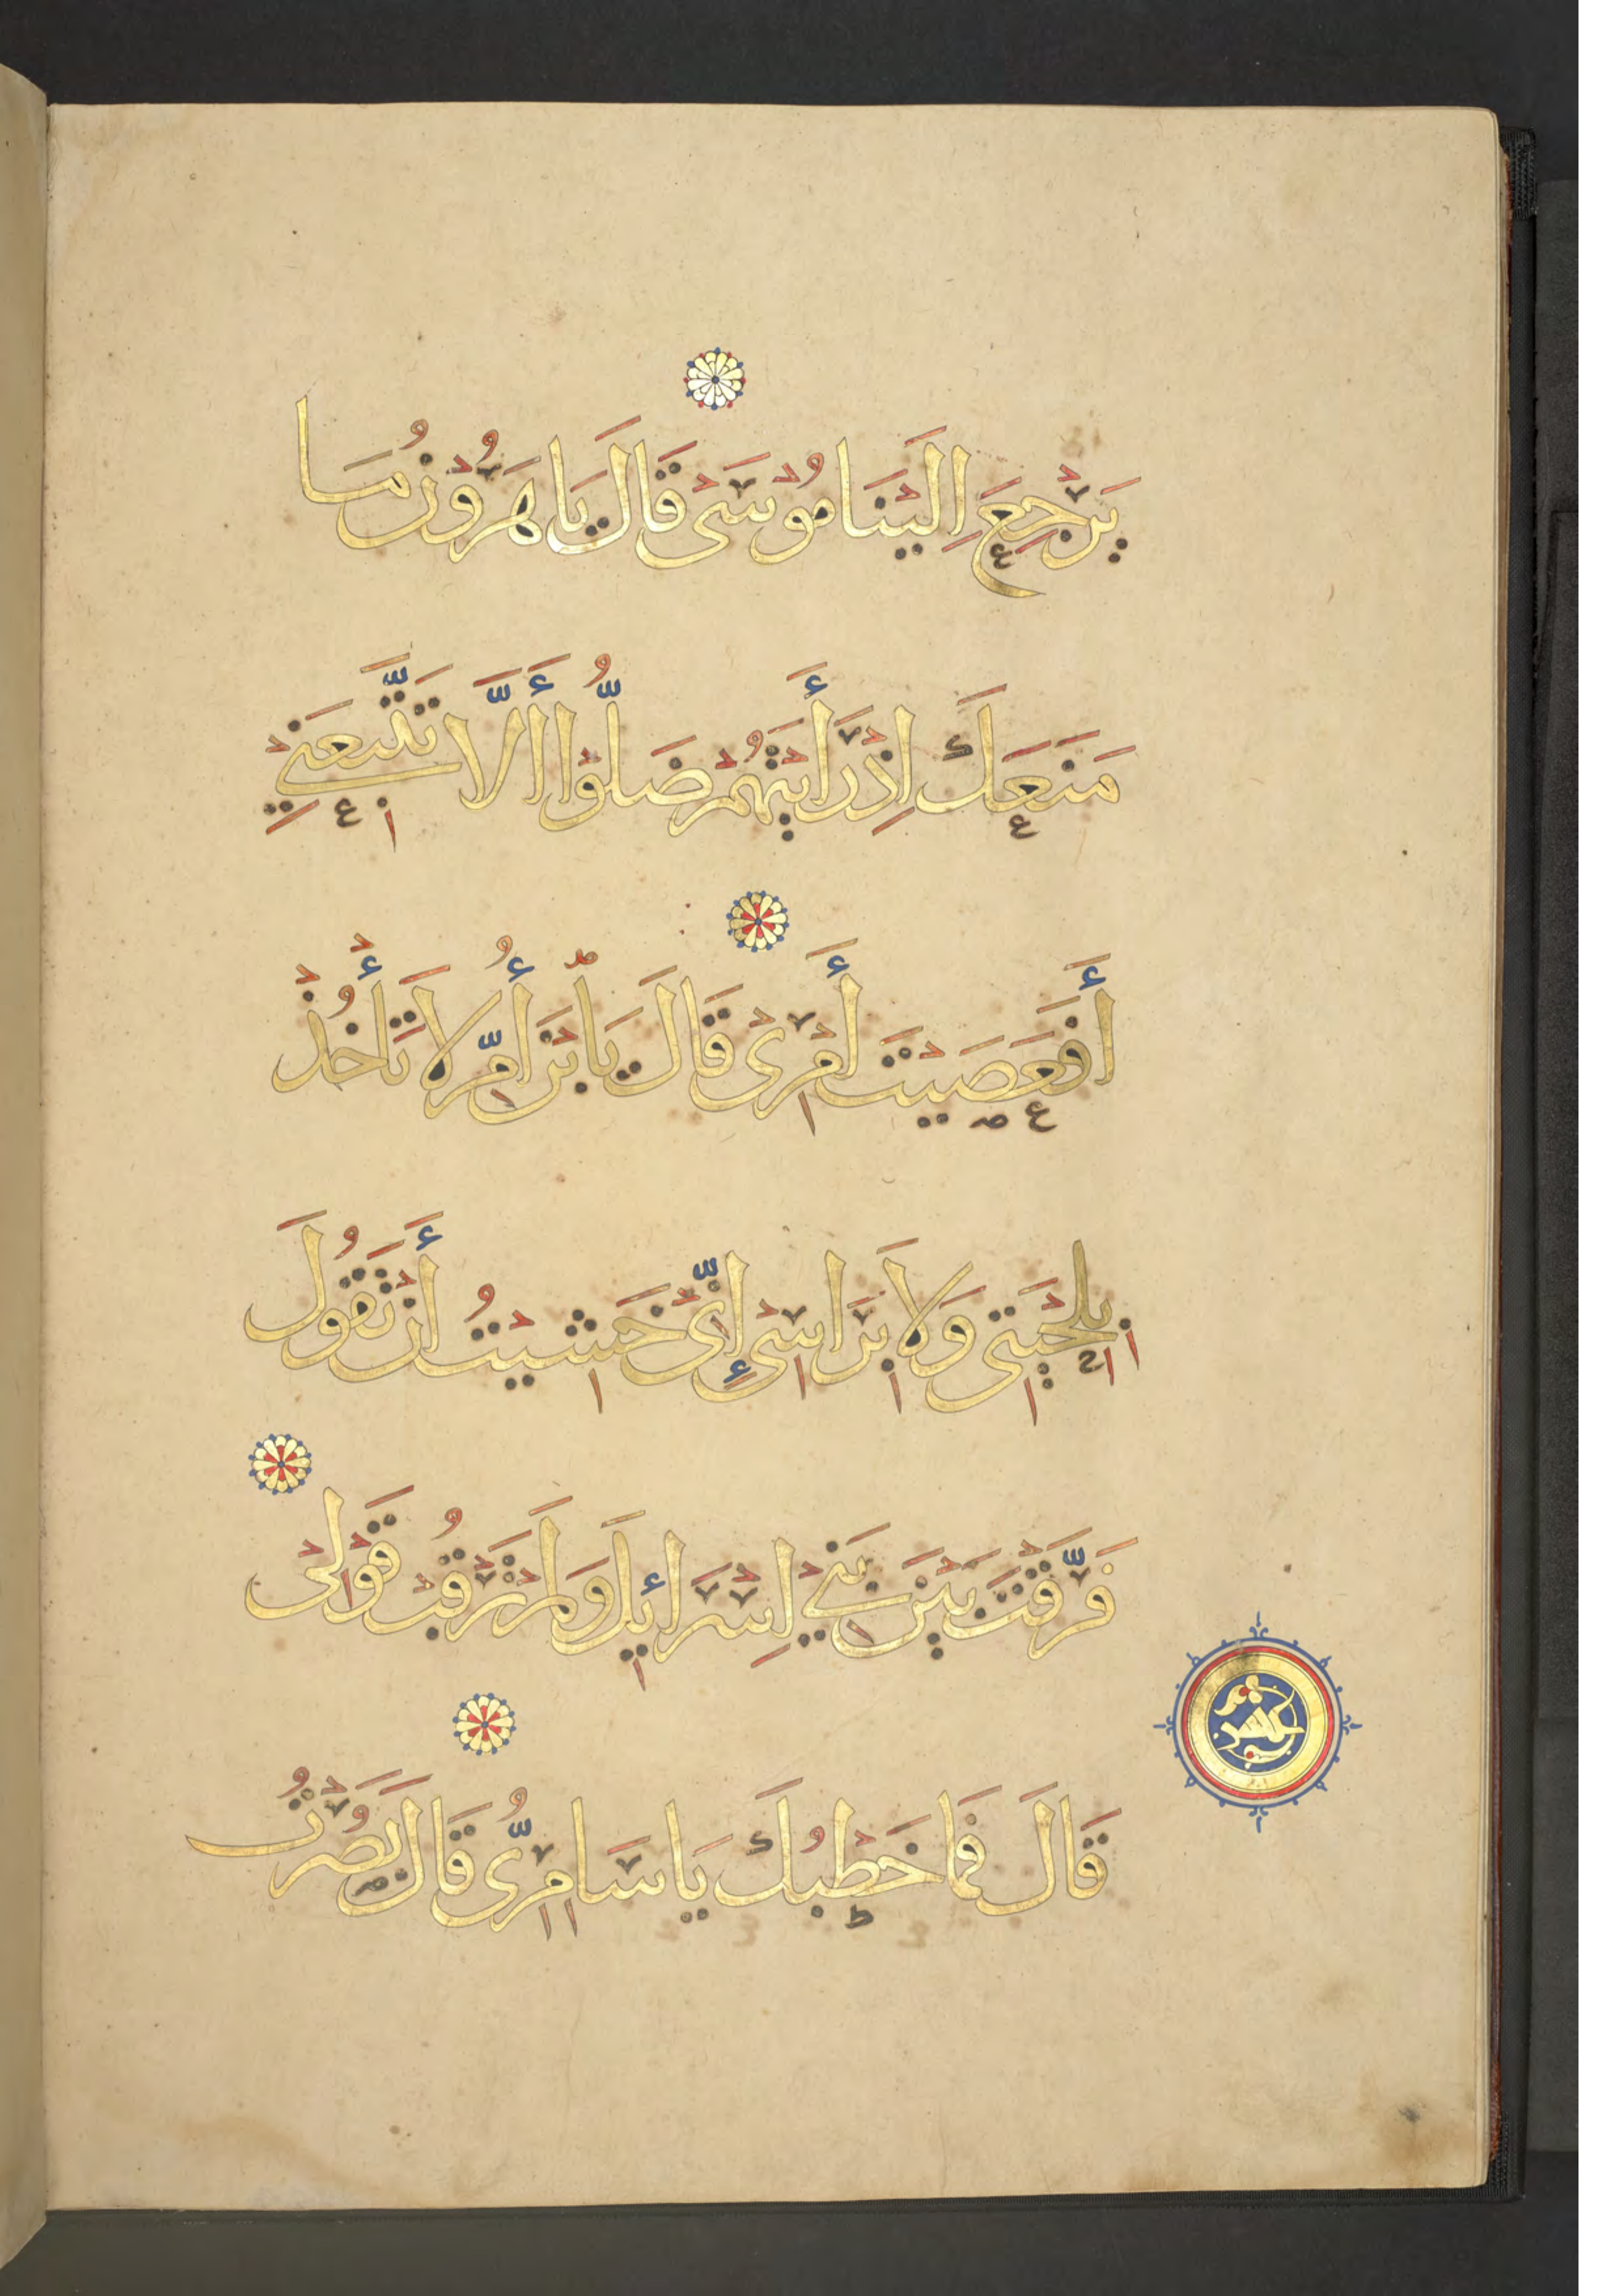 يَرْجِعَ اِلَيْنَا مُوْسَى قَالَ يَا هَرُوْنُ مَا
مَنَعَكَ اِذْ رَأَيْتَهُمْ ضَلُّوْا أَلَّا تَتَّبِعَنِي
أَفَعَصَيْتَ أَمْرِىْ قَالَ يَا ابْنَ أُمِّ لَا تَأْخُذْ
بِلِحْيَتِى وَلَا بِرَاسِىْ إِنِّىْ خَشِيْتُ أَنْ تَقُولَ
فَرَّقْتَ بَيْنَ بَنِي اِسْرَائِلَ وَلَمْ تَرْقُبْ قَوْلِىْ
عشر
قَالَ فَمَا خَطْبُكَ يَا سَامِرِىُّ قَالَ بَصُرْتُ